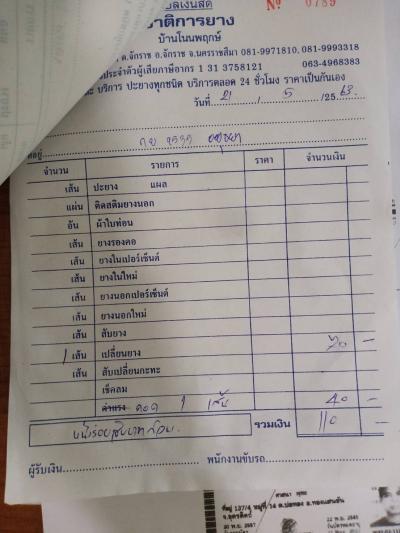 บิลเงินสด
№ 0789
ชาติการยาง
บ้านโนนพฤกษ์
ต.จักราช อ.จักราช จ.นครราชสีมา 081-9971810, 081-9993318
ประจำตัวผู้เสียภาษีอากร 1 31 3758121 063-4968383
บริการ ปะยางทุกชนิด บริการตลอด 24 ชั่วโมง ราคาเป็นกันเอง
วันที่ 21 / 5 / 25 63
ที่อยู่
จำนวน รายการ ราคา จำนวนเงิน
เส้น ปะยาง แผล
แผ่น ติดสติมยางนอก
อัน ผ้าใบท่อน
เส้น ยางรองคอ
เส้น ยางในเปอร์เซ็นต์
เส้น ยางในใหม่
เส้น ยางนอกเปอร์เซ็นต์
เส้น ยางนอกใหม่
เส้น สับยาง
1 เส้น เปลี่ยนยาง 70 -
เส้น สับเปลี่ยนกะทะ
เช็คลม
ค่าแรง ถอด 1 เส้น 40 -
หนึ่งร้อยสิบบาทถ้วน รวมเงิน 110 -
ผู้รับเงิน พนักงานขับรถ